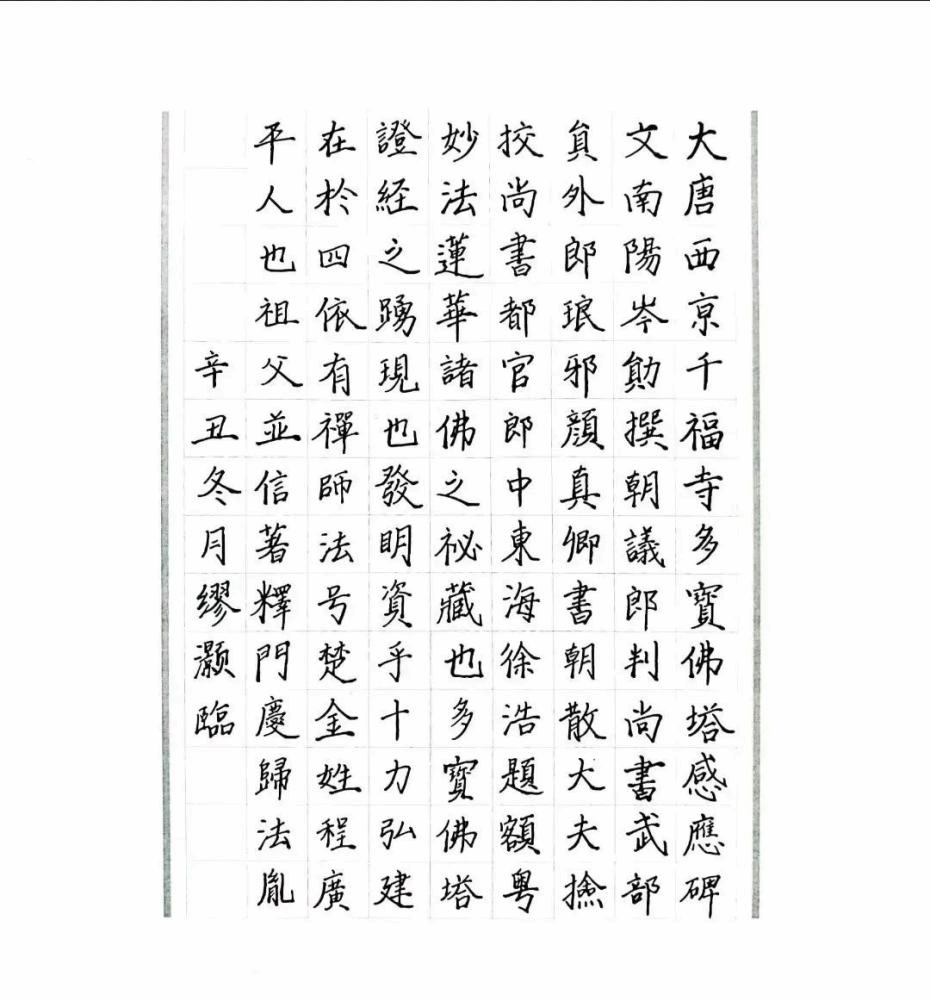 大唐西京千福寺多寶佛塔感應碑
文南陽岑勛撰朝議郎判尚書武部
員外郎琅邪顏真卿書朝散大夫撿
挍尚書都官郎中東海徐浩題額粤
妙法蓮華諸佛之祕藏也多寶佛塔
證經之踴現也發明資乎十力弘建
在於四依有禪師法号楚金姓程廣
平人也祖父並信著釋門慶歸法胤
辛丑冬月繆灝臨